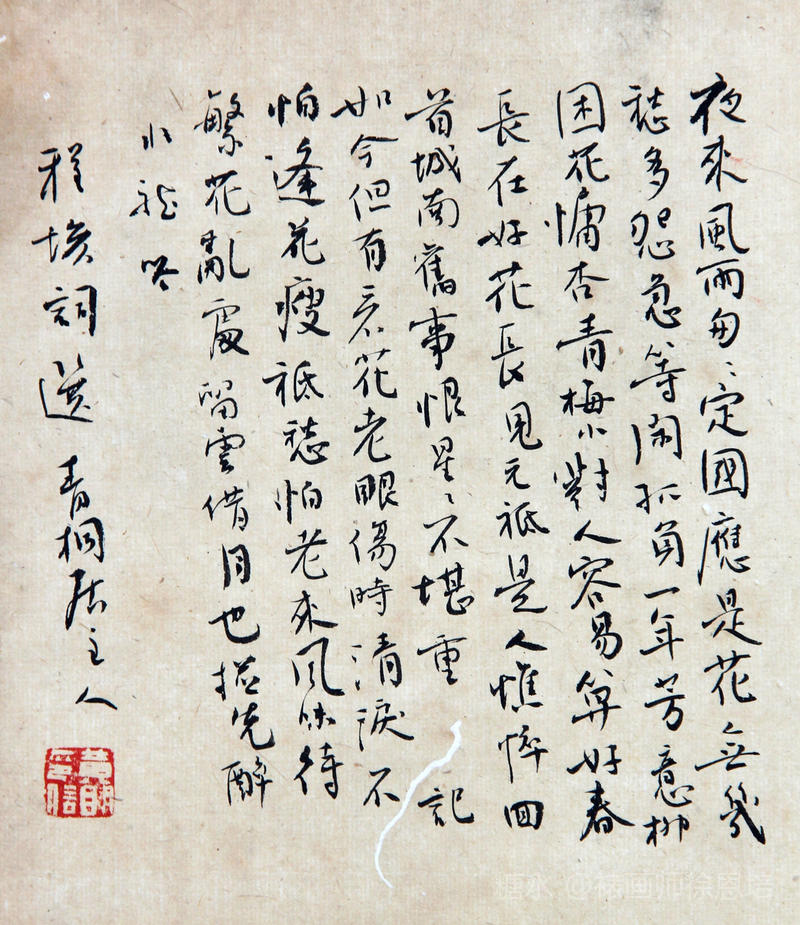 夜來風雨匆〻定國應是花無幾
愁多怨急等閑孤負一年芳意柳
困花慵杏青梅小對人容易算好春
長在好花長見元祗是人憔悴回
首城南舊事恨星〻不堪重記
如今但有看花老眼傷時清淚不
怕逢花瘦祗愁怕老來風味待
繁花亂處留雲借月也先醉
水龍吟
程垓詞選 青桐居主人
糖水 @裱画师徐恩培